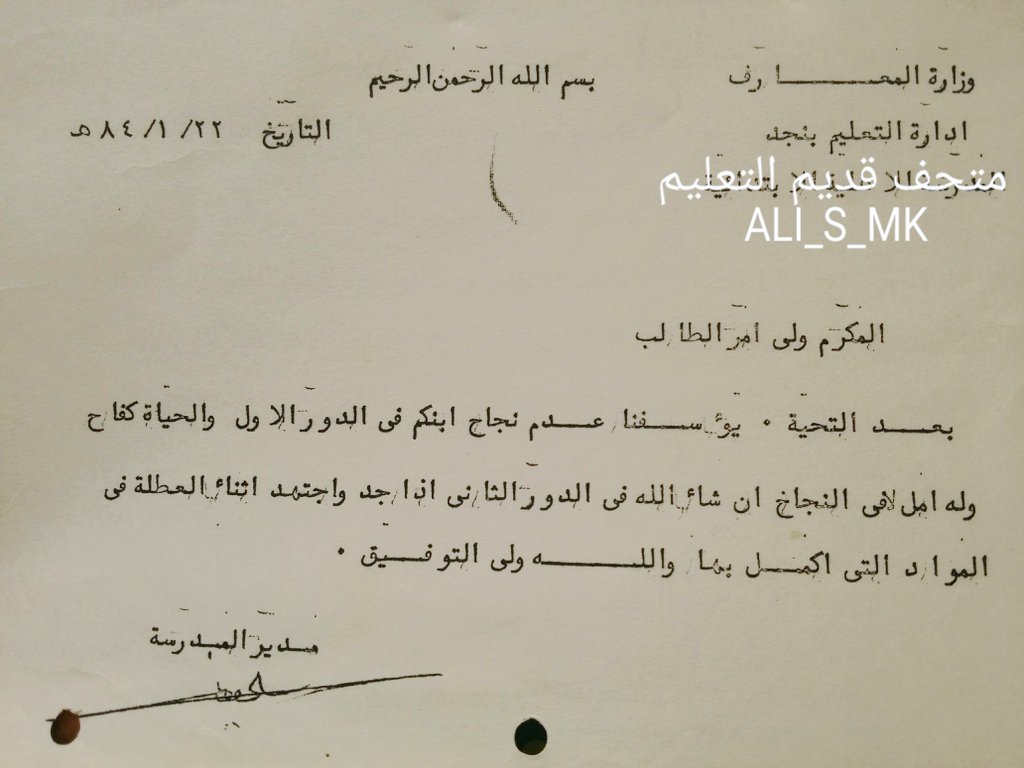 وزارة المعـــارف
بسم الله الرحمن الرحيم
ادارة التعليم بنجد
التاريخ ٢٢/ ١/ ٨٤ هـ
متحف قديم التعليم
ALI_S_MK
المكرم ولى امر الطالب
بعـــد التحية ٠ يؤسـفنا عـدم نجاح ابنكم فى الدور الاول والحياة كفاح
وله امل فى النجاح ان شاء الله فى الدور الثانى اذا جد واجتهد اثناء العطلة فى
الموارد التى اكمـل بها واللــــه ولى التوفـيق ٠
مـدير المدرسة